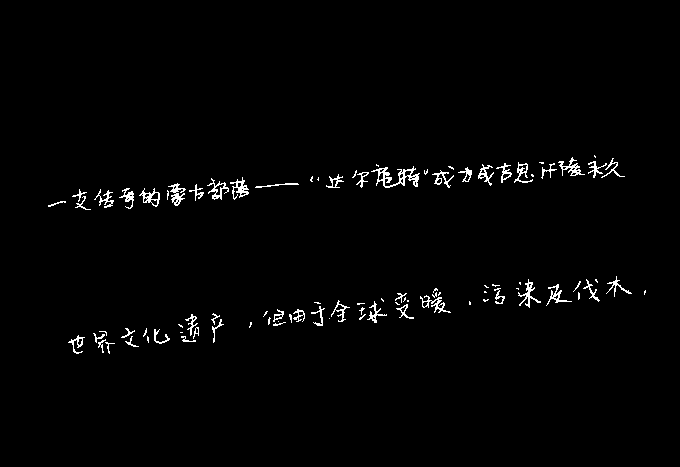 一支传奇的蒙古部落——“达尔扈特”成为成吉思汗陵永久
世界文化遗产，但由于全球变暖，污染及伐木，